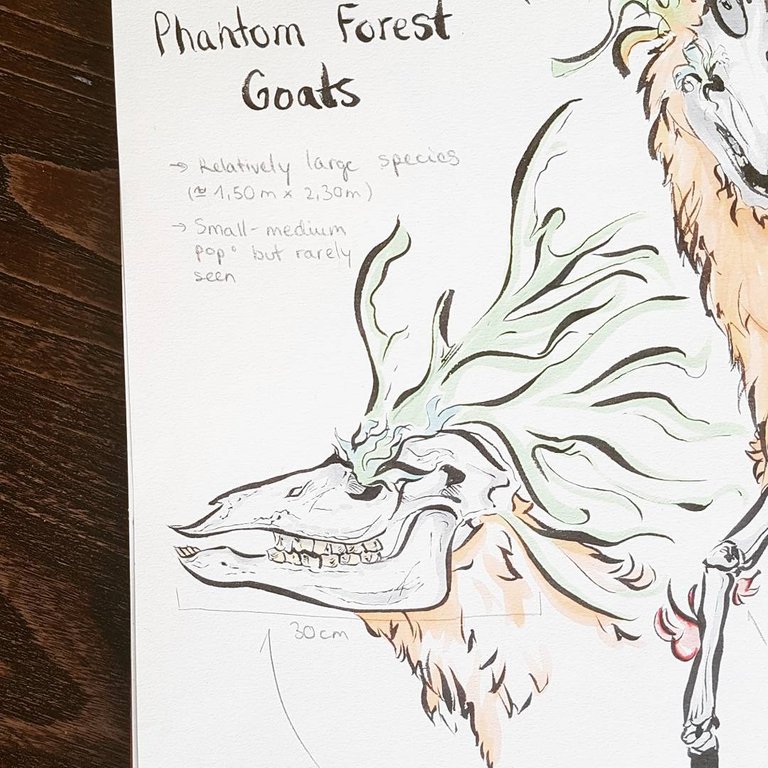 Phantom Forest
Goats
→ Relatively large species
(≈ 1,50m x 2,30m)
→ Small-medium
pop° but rarely
seen
30cm